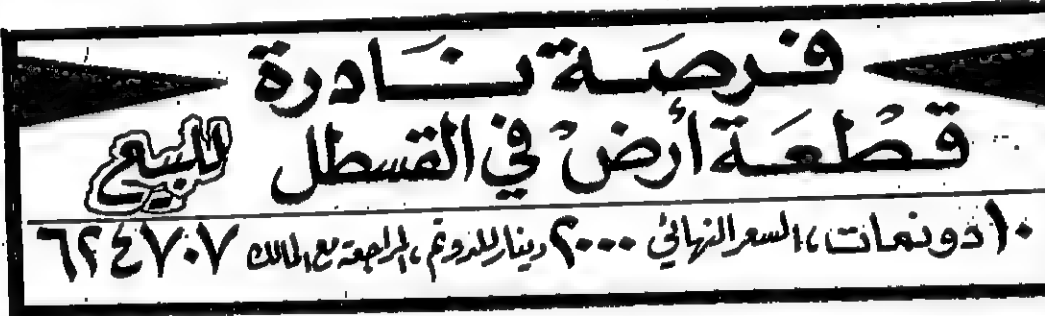 فرصة نادرة
قطعة أرض في القسطل للبيع
١٠ دونمات، السعر النهائي ٢٠٠٠ دينار للدونم، المراجعة مع المالك ٦٢٤٧٠٧